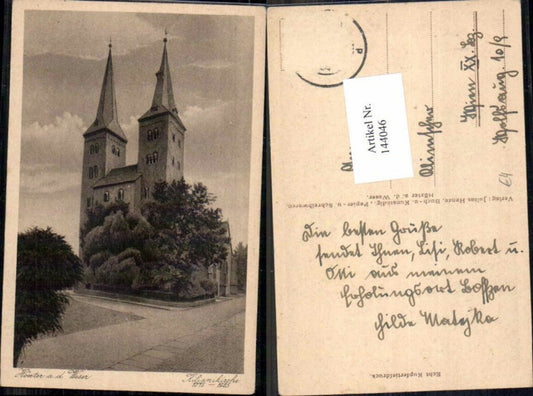 Höxter a. d. Weser
Kilianikirche
1075 – 1925
Artikel Nr.
144046
Wien XX. Bez
Wolfsaug. 10/9
64
Verlag: Julius Henze, Buch- u. Kunsthdlg., Papier- u. Schreibwaren,
Höxter a. d. Weser.
Die besten Grüße
sendet Ihnen, Lisi, Robert u.
Otti aus meinem
Erholungsort Boffzen
Hilde Matejka
Echt Kupfertiefdruck.